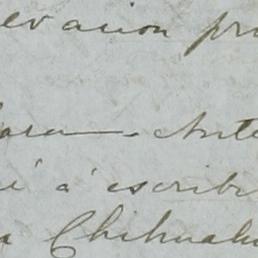 evacion pr
para Ante
é á escribi
a Chihuahu